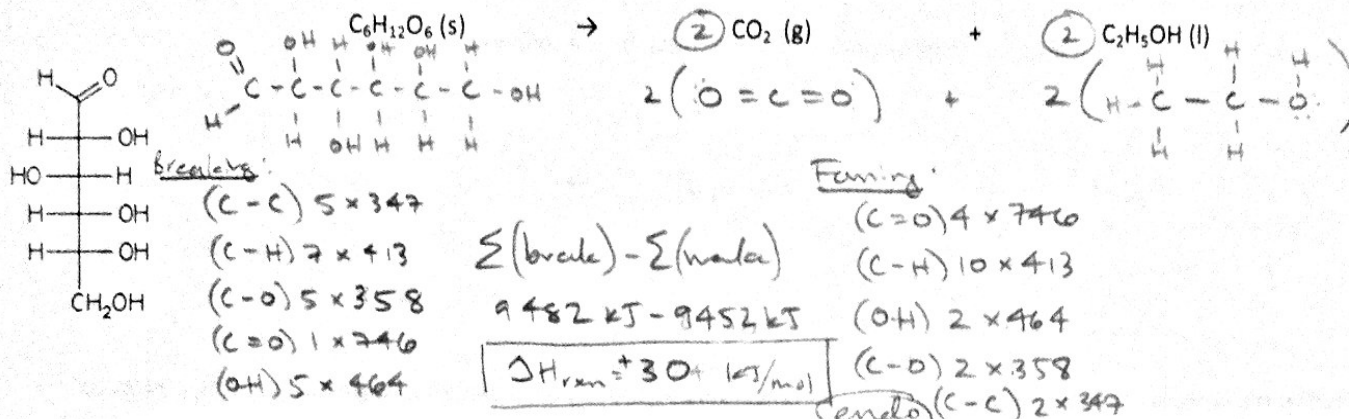 C₆H₁₂O₆ (s) → ② CO₂ (g) + ② C₂H₅OH (l)
O OH H OH OH H H
H O C - C - C - C - C - C - OH 2(O = C = O) + 2(H - C - C - O
H H OH H H H H H
H OH
HO H
H OH
H OH
CH₂OH
Breaking:
(C-C) 5 × 347
(C-H) 7 × 413
(C-O) 5 × 358
(C=O) 1 × 746
(OH) 5 × 464
Σ(break) - Σ(make)
9482 kJ - 9452 kJ
ΔHrxn = +30 kJ/mol
(endo)
Forming:
(C=O) 4 × 746
(C-H) 10 × 413
(OH) 2 × 464
(C-O) 2 × 358
(C-C) 2 × 347